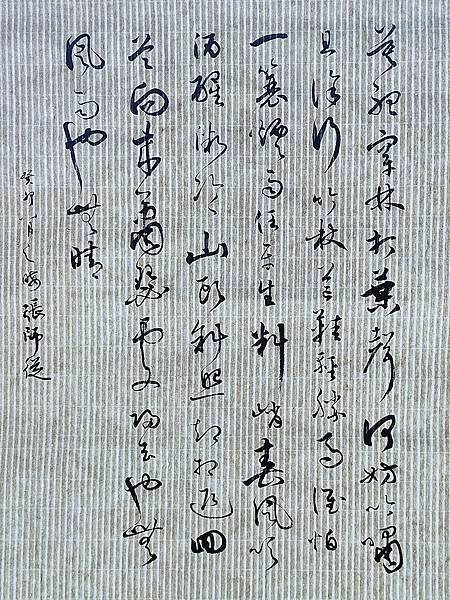 莫聽穿林打葉聲何妨吟嘯
且徐行竹杖芒鞋輕勝馬誰怕
一蓑煙雨任平生料峭春風吹
酒醒微冷山頭斜照却相迎回
首向来蕭瑟處歸去也無
風雨也無晴
癸卯八月之晦張師從